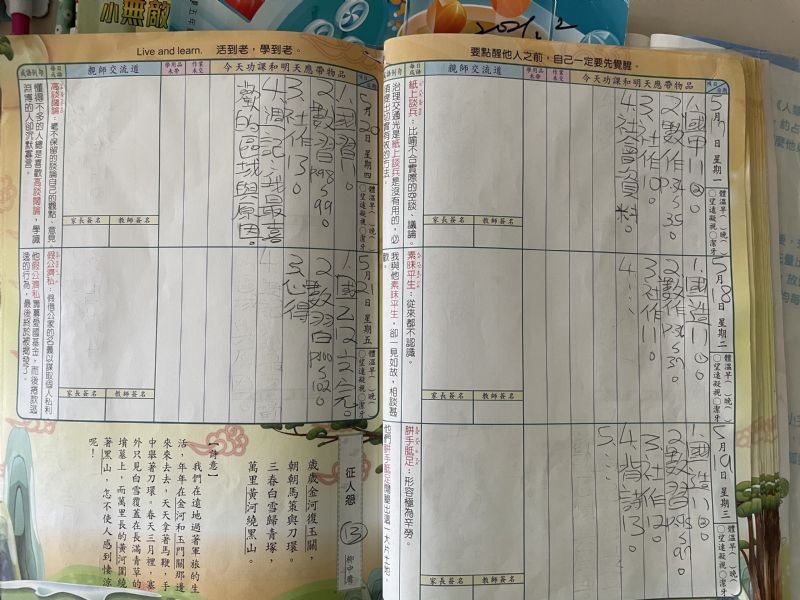 小無敵
要點醒他人之前，自己一定要先覺醒。
項目
日期
今天功課和明天應帶物品
作業
未交
學用品
未帶
親師交流道
每日
成語
成語例句
5月17日 星期一
體溫早( )晚( )
○望遠凝視○潔牙
1.國甲11②。
2.數作P34.35。
3.社作10。
4.社會資料。
家長簽名
教師簽名
紙上談兵：比喻不合實際的空談、議論。
治理交通光是紙上談兵是沒有用的，必
5月18日 星期二
體溫早( )晚( )
○望遠凝視○潔牙
1.國造11①②。
3.社作11。
4.…
家長簽名
教師簽名
素昧平生：從來都不認識。
我與他素昧平生，卻一見如故，相談甚
歡。
5月19日 星期三
體溫早( )晚( )
○望遠凝視○潔牙
1.國造11③。
2.數習P96.97。
3.社作12。
4.背詩13。
5.…
家長簽名
教師簽名
胼手胝足：形容極為辛勞。
Live and learn. 活到老，學到老。
項目
日期
今天功課和明天應帶物品
作業
未交
學用品
未帶
親師交流道
每日
成語
成語例句
5月20日 星期四
體溫早( )晚( )
○望遠凝視○潔牙
1.國習11。
2.數習P98.99。
3.社作13。
4.週記:我最喜
歡的區域與原因。
家長簽名
教師簽名
高談闊論：毫不保留的談論自己的觀點、意見。
懂得不多的人總是喜歡高談闊論，學識
淵博的人卻沉默寡言。
5月21日 星期五
體溫早( )晚( )
○望遠凝視○潔牙
1.國乙12
3.心得
家長簽名
教師簽名
假公濟私：假借公家的名義以謀取個人私利
他假公濟私籌募愛國基金，而後捲款逃
逸的行為，最後終於被揭發了。
征人怨
13
柳中庸
歲歲金河復玉關，
朝朝馬策與刀環。
三春白雪歸青塚，
萬里黃河繞黑山。
【詩意】
我們在遠地過著軍旅的生
活，年年在金河和玉門關那邊
來來去去，天天拿著馬鞭，手
中舉著刀環。春天三月裡，塞
外只見白雪覆蓋在長滿青草的
墳墓上，而萬里長的黃河圍繞
著黑山，怎不使人感到悽涼
呢！